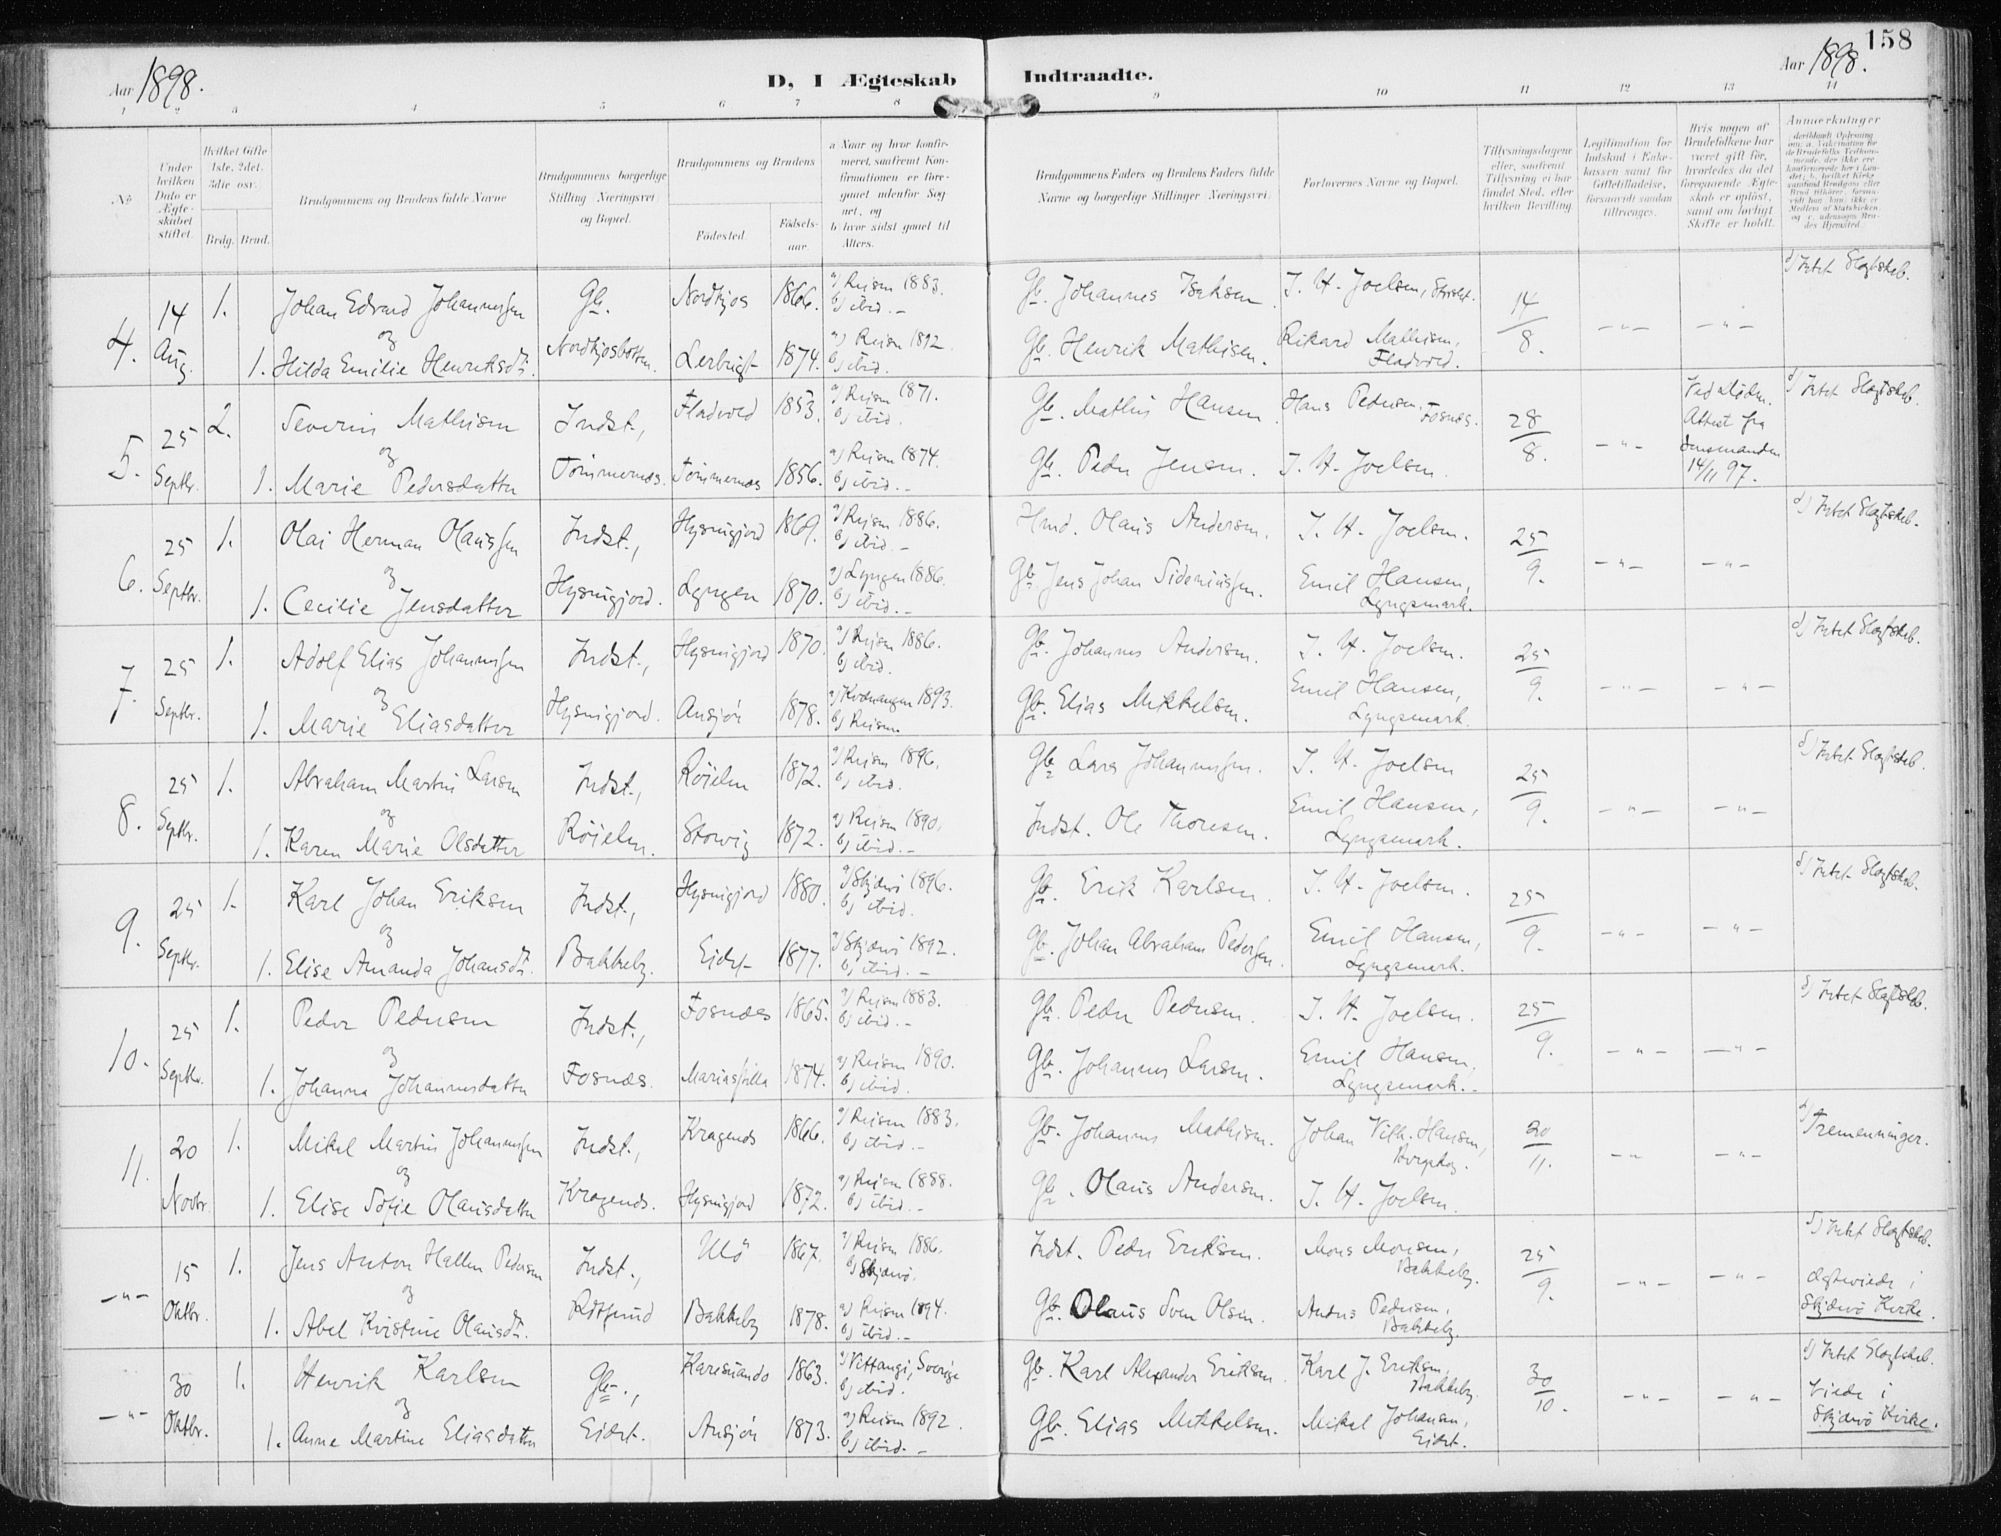 158
Aar 1898.
D, I Ægteskab Indtraadte.
Aar 1898.
1 2 3 4 5 6 7 8 9 10 11 12 13 14
No.
Under hvilken Dato er Ægteskabet stiftet.
Hvilket Gifte 1ste, 2det, 3die osv.
Brdg. Brud.
Brudgommens og Brudens fulde Navne
Brudgommens borgerlige Stilling Næringsvei og Bopæl.
Brudgommens og Brudens
Fødested. Fødselsaar.
a Naar og hvor konfirmeret, saafremt Konfirmationen er foregaaet udenfor Sognet, og
b hvor sidst gaaet til Alters.
Brudgommens Faders og Brudens Faders fulde Navne og borgerlige Stillinger Næringsvei
Forlovernes Navne og Bopæl.
Tillysningsdagene eller, saafremt Tillysning ei har fundet Sted, efter hvilken Bevilling
Legitimation for Indskud i Enkekassen samt for Giftetilladelse, forsaavidt saadan tiltrænges.
Hvis nogen af Brudefolkene har været gift før, hvorledes da det foregaaende Ægteskab er opløst, samt om lovligt Skifte er holdt.
Anmærkninger
4. 14 Aug. 1. Johan Edvard Johannessen Gb. Nordkjos 1866. a) Reisen 1883. b) ibid. – Gb. Johannes Isaksen J. H. Joelsen, 14/8. – " – – " – d) Intet Slagtskab.
og
1. Hilda Emilie Henriksdt. Nordkjosbotten. 1874. a) Reisen 1892. b) ibid. Gb. Henrik Mathisen. Rikard Mathisen, Fladvold.
5. 25 Septbr. 2. Severin Mathisen Indst., Fladvold 1853. a) Reisen 1871. b) ibid. Gb. Mathis Hansen Hans Pedersen, Fosnæs. 28/8. – " – Ved Døden. Attest fra Lensmanden 14/11 97. d) Intet Slagtskab.
og
1. Marie Pedersdatter Tømmernæs. Tømmernæs 1856. a) Reisen 1874. b) ibid. – Gb. Peder Jensen. J. H. Joelsen.
6. 25 Septbr. 1. Olai Herman Olaussen Indst., 1869. a) Reisen 1886. b) ibid. – Olaus Andersen. J. H. Joelsen. 25/9. – " – – " – d) Intet Slagtskab.
og
1. Cecilie Jensdatter Lyngen 1870. a) Lyngen 1886. b) ibid. – Gb. Jens Johan Emil Hansen, Lyngsmark.
7. 25 Septbr. 1. Adolf Elias Johannessen Indst., 1870. a) Reisen 1886. b) ibid. Gb. Johannes Andersen. J. H. Joelsen. 25/9. – " – – " – d) Intet Slagtskab.
og
1. Marie Eliasdatter 1878. a) Kvænangen 1893. b) Reisen. Gb. Elias Mikkelsen. Emil Hansen, Lyngsmark.
8. 25 Septbr. 1. Abraham Martin Larsen Indst., Røielen 1872. a) Reisen 1896. b) ibid. Gb. Lars Johannessen. J. H. Joelsen 25/9. – " – – " – d) Intet Slagtskab.
og
1. Karen Marie Olsdatter Røielen. Storvig 1872. a) Reisen 1890. b) ibid. – Indst. Ole Thoresen. Emil Hansen, Lyngsmark.
9. 25 Septbr. 1. Karl Johan Eriksen Indst., 1880. a) Skjærvø 1896. b) ibid. Gb. Erik Karlsen J. H. Joelsen. 25/9. – " – – " – d) Intet Slagtskab.
og
1. Elise Amanda Johansdt. Bakkeby. Eidet 1877. a) Skjærvø 1892. b) ibid. – Gb. Johan Abraham Pedersen. Emil Hansen, Lyngsmark.
10. 25 Septbr. 1. Peder Pedersen Indst., Fosnæs 1865. a) Reisen 1883. b) ibid. – Gb. Peder Pedersen. J. H. Joelsen. 25/9. – " – – " – d) Intet Slagtskab.
og
1. Johanna Johannesdatter Fosnæs. 1874. a) Reisen 1890. b) ibid. Gb. Johannes Larsen. Emil Hansen, Lyngsmark. –
11. 20 Novbr. 1. Mikal Martin Johannessen Indst., Kragenæs 1866. a) Reisen 1883. b) ibid. – Gb. Johannes Mathisen. Johan Vilh. Hansen, 20/11. – " – – " – Tremenninger.
og
1. Elise Sofie Olausdatter Kragenæs. 1872. a) Reisen 1888. b) ibid. – Gb. Olaus Andersen. J. H. Joelsen.
– " – 15 Oktbr. 1. Jens Anton Hallen Pedersen Indst., Ulø 1867. a) Reisen 1886. b) Skjærvø. Indst. Peder Eriksen. Mons Monsen, Bakkeby. 25/9. – " – – " – d) Intet Slagtskab. Ægteviede i Skjærvø Kirke.
og
1. Abel Kristine Olausdt. Rotsund Bakkeby 1878. a) Reisen 1894. b) ibid. – Gb. Olaus Sven Olsen. Anders Pedersen, Bakkeby.
– " – 30 Oktbr. 1. Henrik Karlsen Gb., Karesuando 1863. a) Vittangi, Sverige b) ibid. Gb. Karl Alexander Eriksen. Karl J. Eriksen, Bakkeby. 30/10. – " – – " – d) Intet Slagtskab. Viede i Skjærvø Kirke.
og
1. Anne Martine Eliasdatter Eidet. 1873. a) Reisen 1892. b) ibid. – Gb. Elias Mikkelsen. Mikal Johansen, Eidet.